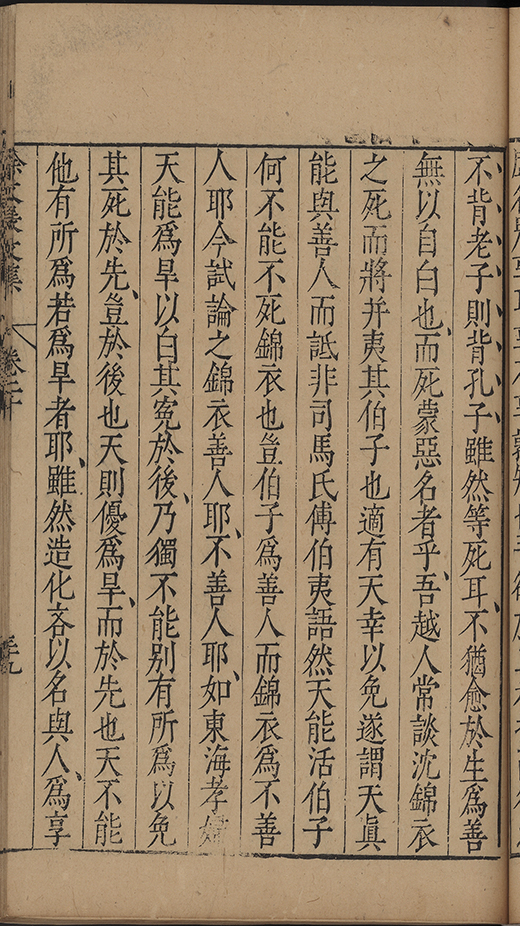 不背老子則背孔子雖然等死耳、不猶愈於生爲善
無以自白也、而死蒙惡名者乎、吾越人常談沈錦衣
之死而將并夷其伯子也適有天幸以免遂謂天眞
能與善人而詆非司馬氏傳伯夷語然天能活伯子
何不能不死錦衣也豈伯子爲善人而錦衣爲不善
人耶今試論之錦衣善人耶、不善人耶、如東海孝婦
天能爲旱以白其寃於後、乃獨不能別有所爲以免
其死於先、豈於後也天則優爲旱、而於先也天不能
他有所爲若爲旱者耶、雖然造化吝以名與人、爲享
徐文長文集 卷二十 三九